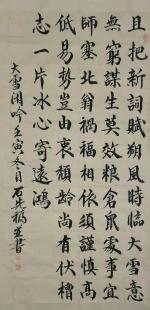 且把新詞賦朔風時臨大雪意
無窮謀生莫效糧倉鼠處事宜
師塞北翁禍福相依須謹慎高
低易勢豈由衷頹齡尚有伏櫪
志一片冰心寄遠鴻
大雪閑吟壬寅冬月石先福並書